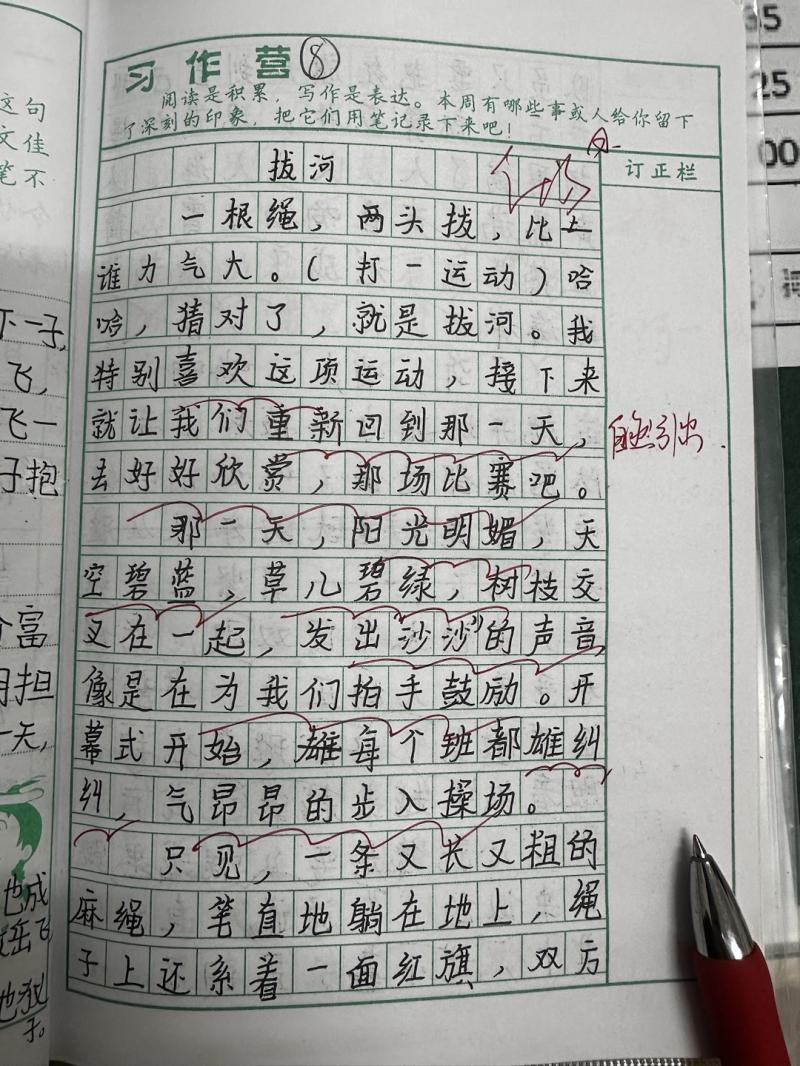 习作营⑧
阅读是积累，写作是表达。本周有哪些事或人给你留下
了深刻的印象，把它们用笔记录下来吧！
订正栏
拔河
一根绳，两头拔，比一
谁力气大。（打一运动）哈
哈，猜对了，就是拔河。我
特别喜欢这项运动，接下来
就让我们重新回到那一天，
去好好欣赏，那场比赛吧。
自然引出
那一天，阳光明媚，天
空碧蓝，草儿碧绿，树枝交
叉在一起，发出“沙沙”的声音，
像是在为我们拍手鼓励。开
幕式开始，雄每个班都雄纠
纠，气昂昂的步入操场。
只见，一条又长又粗的
麻绳，笔直地躺在地上，绳
子上还系着一面红旗，双方
这句
文佳
笔不
下一子，
飞，
飞一
子抱
富
担
一天，
也成
飞
地
子。
25
00